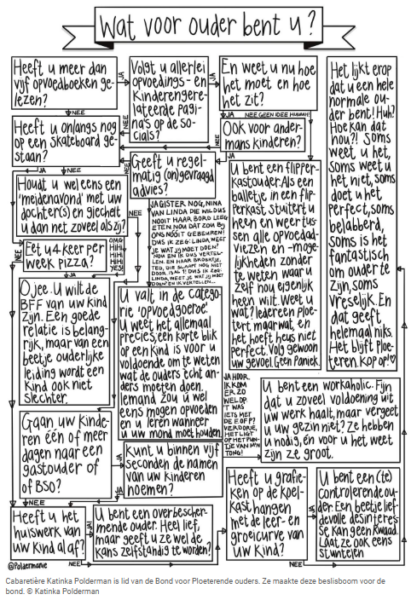 Wat voor ouder bent u?
Heeft u meer dan
vijf opvoedboeken ge-
lezen?
JA
NEE
Volgt u allerlei
opvoedings- en
Kinderengere-
lateerde pagi-
na's op de so-
cials?
JA
NEE
En weet u nu hoe
het moet en hoe
het zit?
JA
NEE GEEN IDEE
Het lijkt erop
dat u een hele
normale ou-
der bent! Huh?
Hoe kan dat
nou?! Soms
weet u het,
soms weet u
het niet, soms
doet u het
perfect, soms
belabberd,
soms is het
fantastisch
om ouder te
zijn, soms
vreselijk. En
dat geeft
helemaal niks.
Het blijft plo-
teren. Kop op!
Heeft u onlangs nog
op een skateboard ge-
staan?
JA
NEE
Ook voor ander-
mans kinderen?
Geeft u regel-
matig (on)gevraagd
advies?
Houdt u wel eens een
'meidenavond' met uw
dochter(s) en giechelt
u dan net zoveel als zij?
NEE
JA GISTER NOG, NINA
VAN LINDA DIE WIL DUS
NOOIT HAAR BORD LEEG
ETEN NOU DAT ZOU BIJ
ONS NOOIT GEBEUREN!
DUS IK ZEG: LINDA WEET
JE WAT JIJ MOET DOEN?
U bent een flipper-
kastouder. Als een
balletje in een flip-
perkast stuitert u
heen en weer tus-
sen alle opvoedad-
viezen en -moge-
lijkheden zonder
te weten waar u
zelf nou eigenlijk
heen wilt. Weet u
wat? Iedereen plo-
etert maar wat, en
het hoeft heus niet
perfect. Volg gewoon
uw gevoel. Geen Paniek.
Eet u 4 keer per
week pizza?
O jee. U wilt de
BFF van uw kind
zijn. Een goede
relatie is belang-
rijk, maar van een
beetje ouderlijke
leiding wordt een
kind ook niet
slechter.
U valt in de categorie
'opvoedgoeroe'.
U weet het allemaal
precies, een korte blik
op een kind is voor u
voldoende om te weten
wat de ouders echt an-
ders moeten doen.
Iemand zou u wel
eens mogen opvoeden
en u leren wanneer
u uw mond moet houden.
U bent een workaholic. Fijn
dat u zoveel voldoening uit
uw werk haalt, maar vergeet
u uw gezin niet? Ze hebben
u nodig, en voor u het weet
zijn ze groot.
Gaan uw kinde-
ren één of meer
dagen naar een
gastouder of
of BSO?
Kunt u binnen vijf
seconden de namen
van uw kinderen
noemen?
Heeft u grafie-
ken op de koel-
kast hangen
met de leer- en
groeicurve van
uw kind?
U bent een (te)
controlerende ou-
der. Een beetje lief-
devolle desinteres-
se kan geen kwaad.
Laat ze ook eens
stuntelen
Heeft u het
huiswerk van
uw kind al af?
U bent een overbescher-
mende ouder. Heel lief,
maar geeft u ze wel de
kans zelfstandig te worden?
NEE
JA
@Poldermanie
Cabaretière Katinka Polderman is lid van de Bond voor Ploeterende ouders. Ze maakte deze beslisboom voor de
bond. © Katinka Polderman